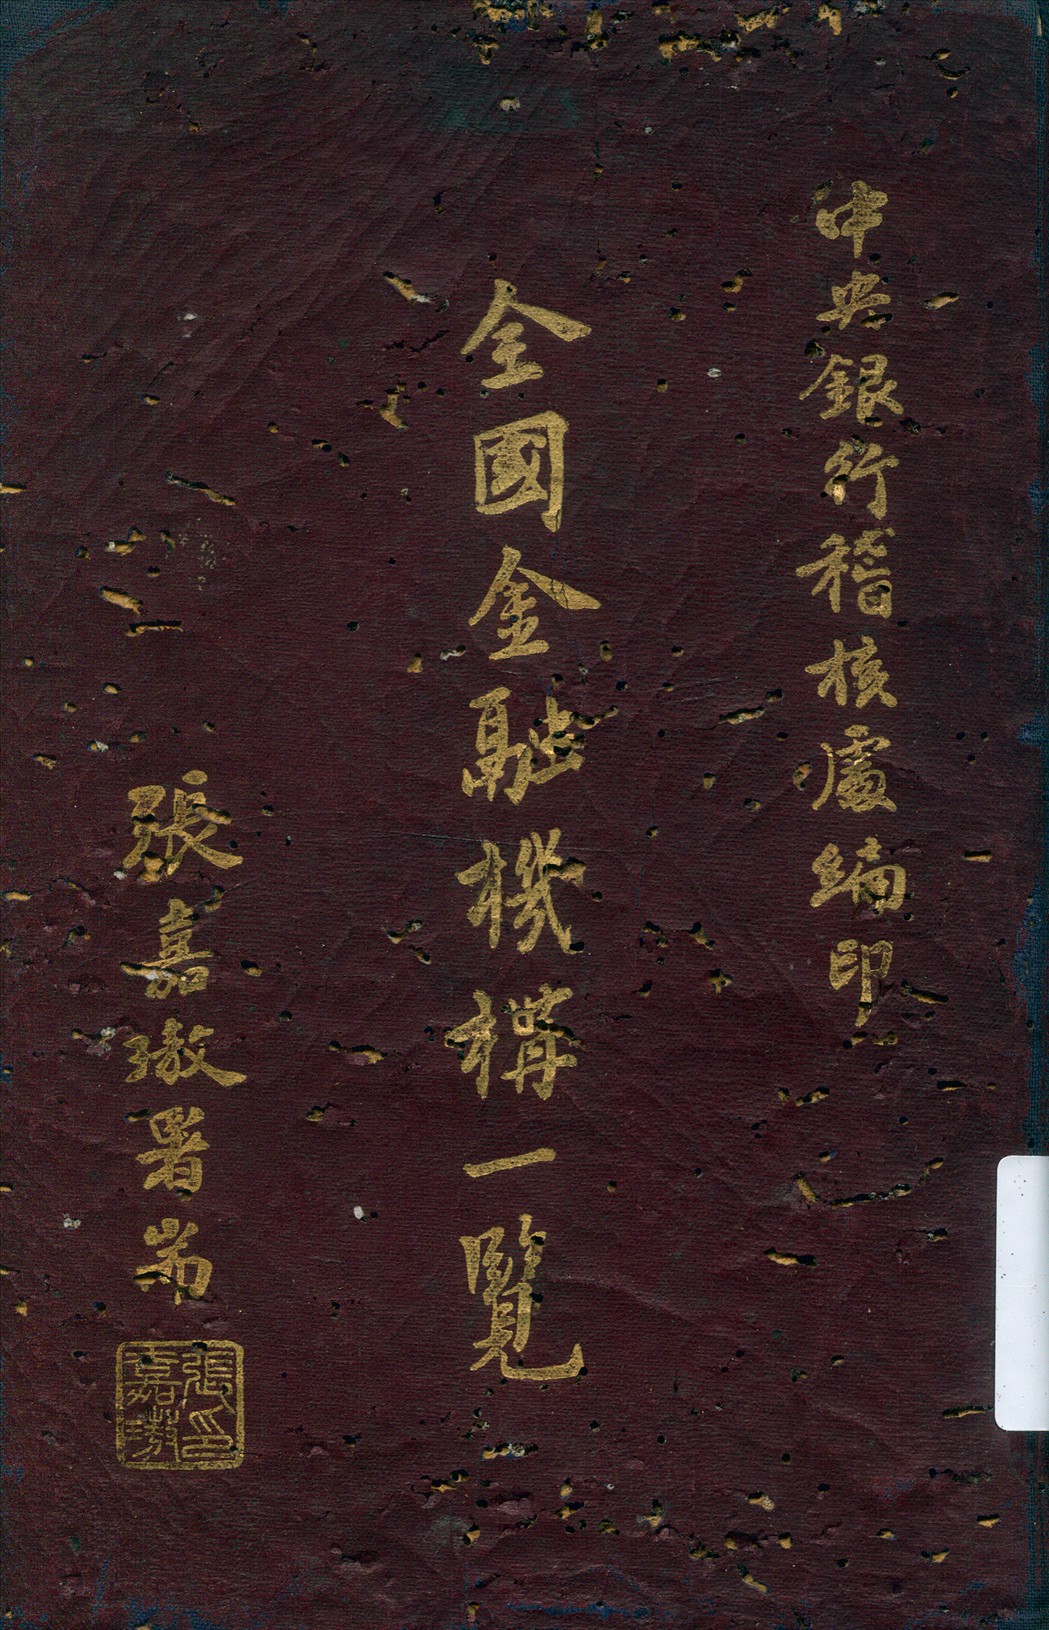 中央銀行稽核處編印
全國金融機構一覽
張嘉璈署耑
張嘉璈印